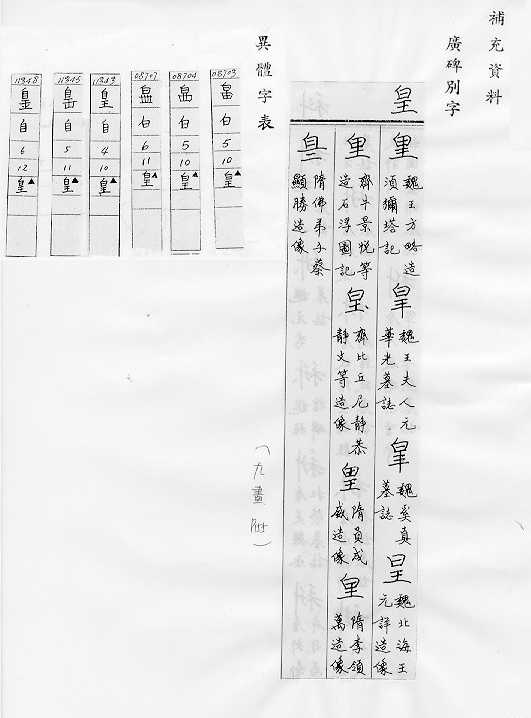 補充資料
廣碑別字
皇
皇 魏王方略造須彌塔記
皇 魏王夫人元華光墓誌
皇 魏奚真墓誌
皇 魏北海王元詳造像
皇 齊牛景悅等造石浮圖記
皇 齊比丘尼靜恭靜文等造像
皇 隋員成威造像
皇 隋李領萬造像
隋佛弟子蔡顯勝造像
(九畫附)
異體字表
08703
白
5
10
皇▲
08704
白
5
10
皇▲
08707
白
6
11
皇▲
11343
皇
自
4
10
皇▲
11345
自
5
11
皇▲
11348
自
6
12
皇▲